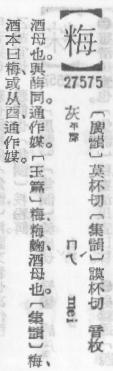 【䊈】
27575
〔廣韻〕莫杯切〔集韻〕謨杯切 音枚
灰平聲 ㄇㄟˊ mei
酒母也。與酶同。〔玉篇〕䊈、䊈麴、酒母也。〔集韻〕䊈、
酒本曰䊈、或从酉、通作媒。